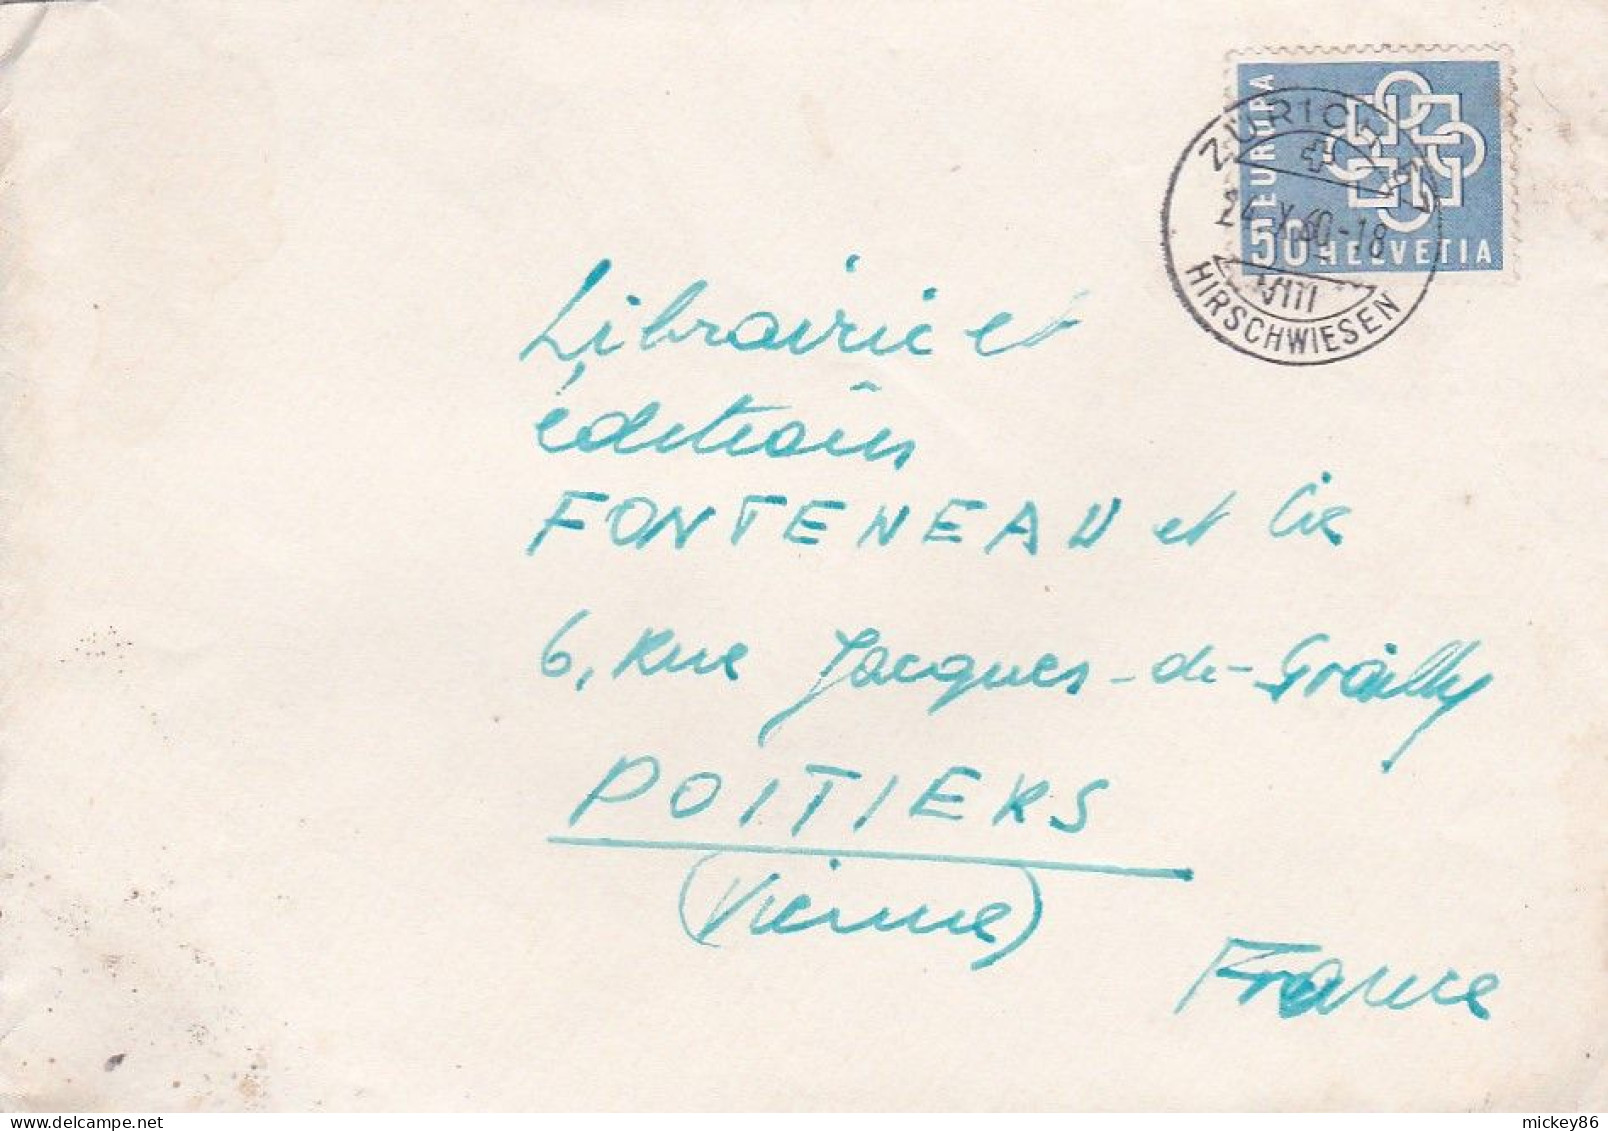 EUROPA
50 HELVETIA
ZÜRICH
24.X.60-18
VIII
HIRSCHWIESEN
Librairie et
éditions
FONTENEAU et Cie
6, Rue Jacques-de-Grailly
POITIERS
(Vienne)
France
mickey86